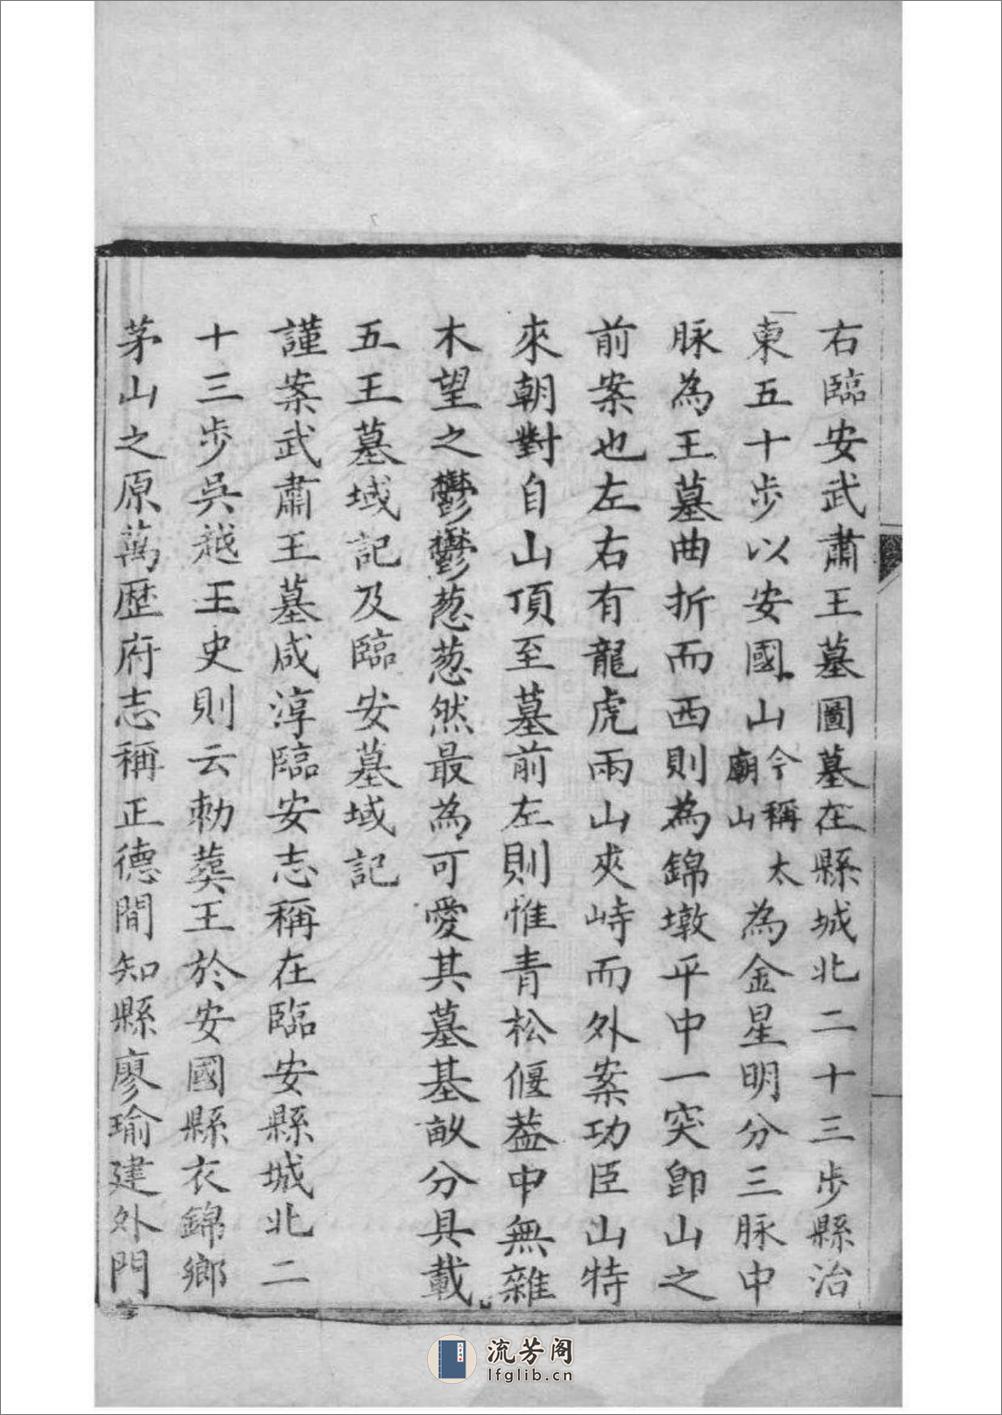 右臨安武肅王墓圖墓在縣城北二十三步縣治
東五十步以安國山今稱太廟山為金星明分三脉中
脉為王墓曲折而西則為錦墩平中一突卽山之
前案也左右有龍虎兩山夾峙而外案功臣山特
來朝對自山頂至墓前左則惟青松偃葢中無雜
木望之鬱鬱葱葱然最為可愛其墓基畝分具載
五王墓域記及臨安墓域記
謹案武肅王墓咸淳臨安志稱在臨安縣城北二
十三步吳越王史則云勅葬王於安國縣衣錦鄉
茅山之原萬歴府志稱正德間知縣廖瑜建外門
流芳阁
lfglib.cn